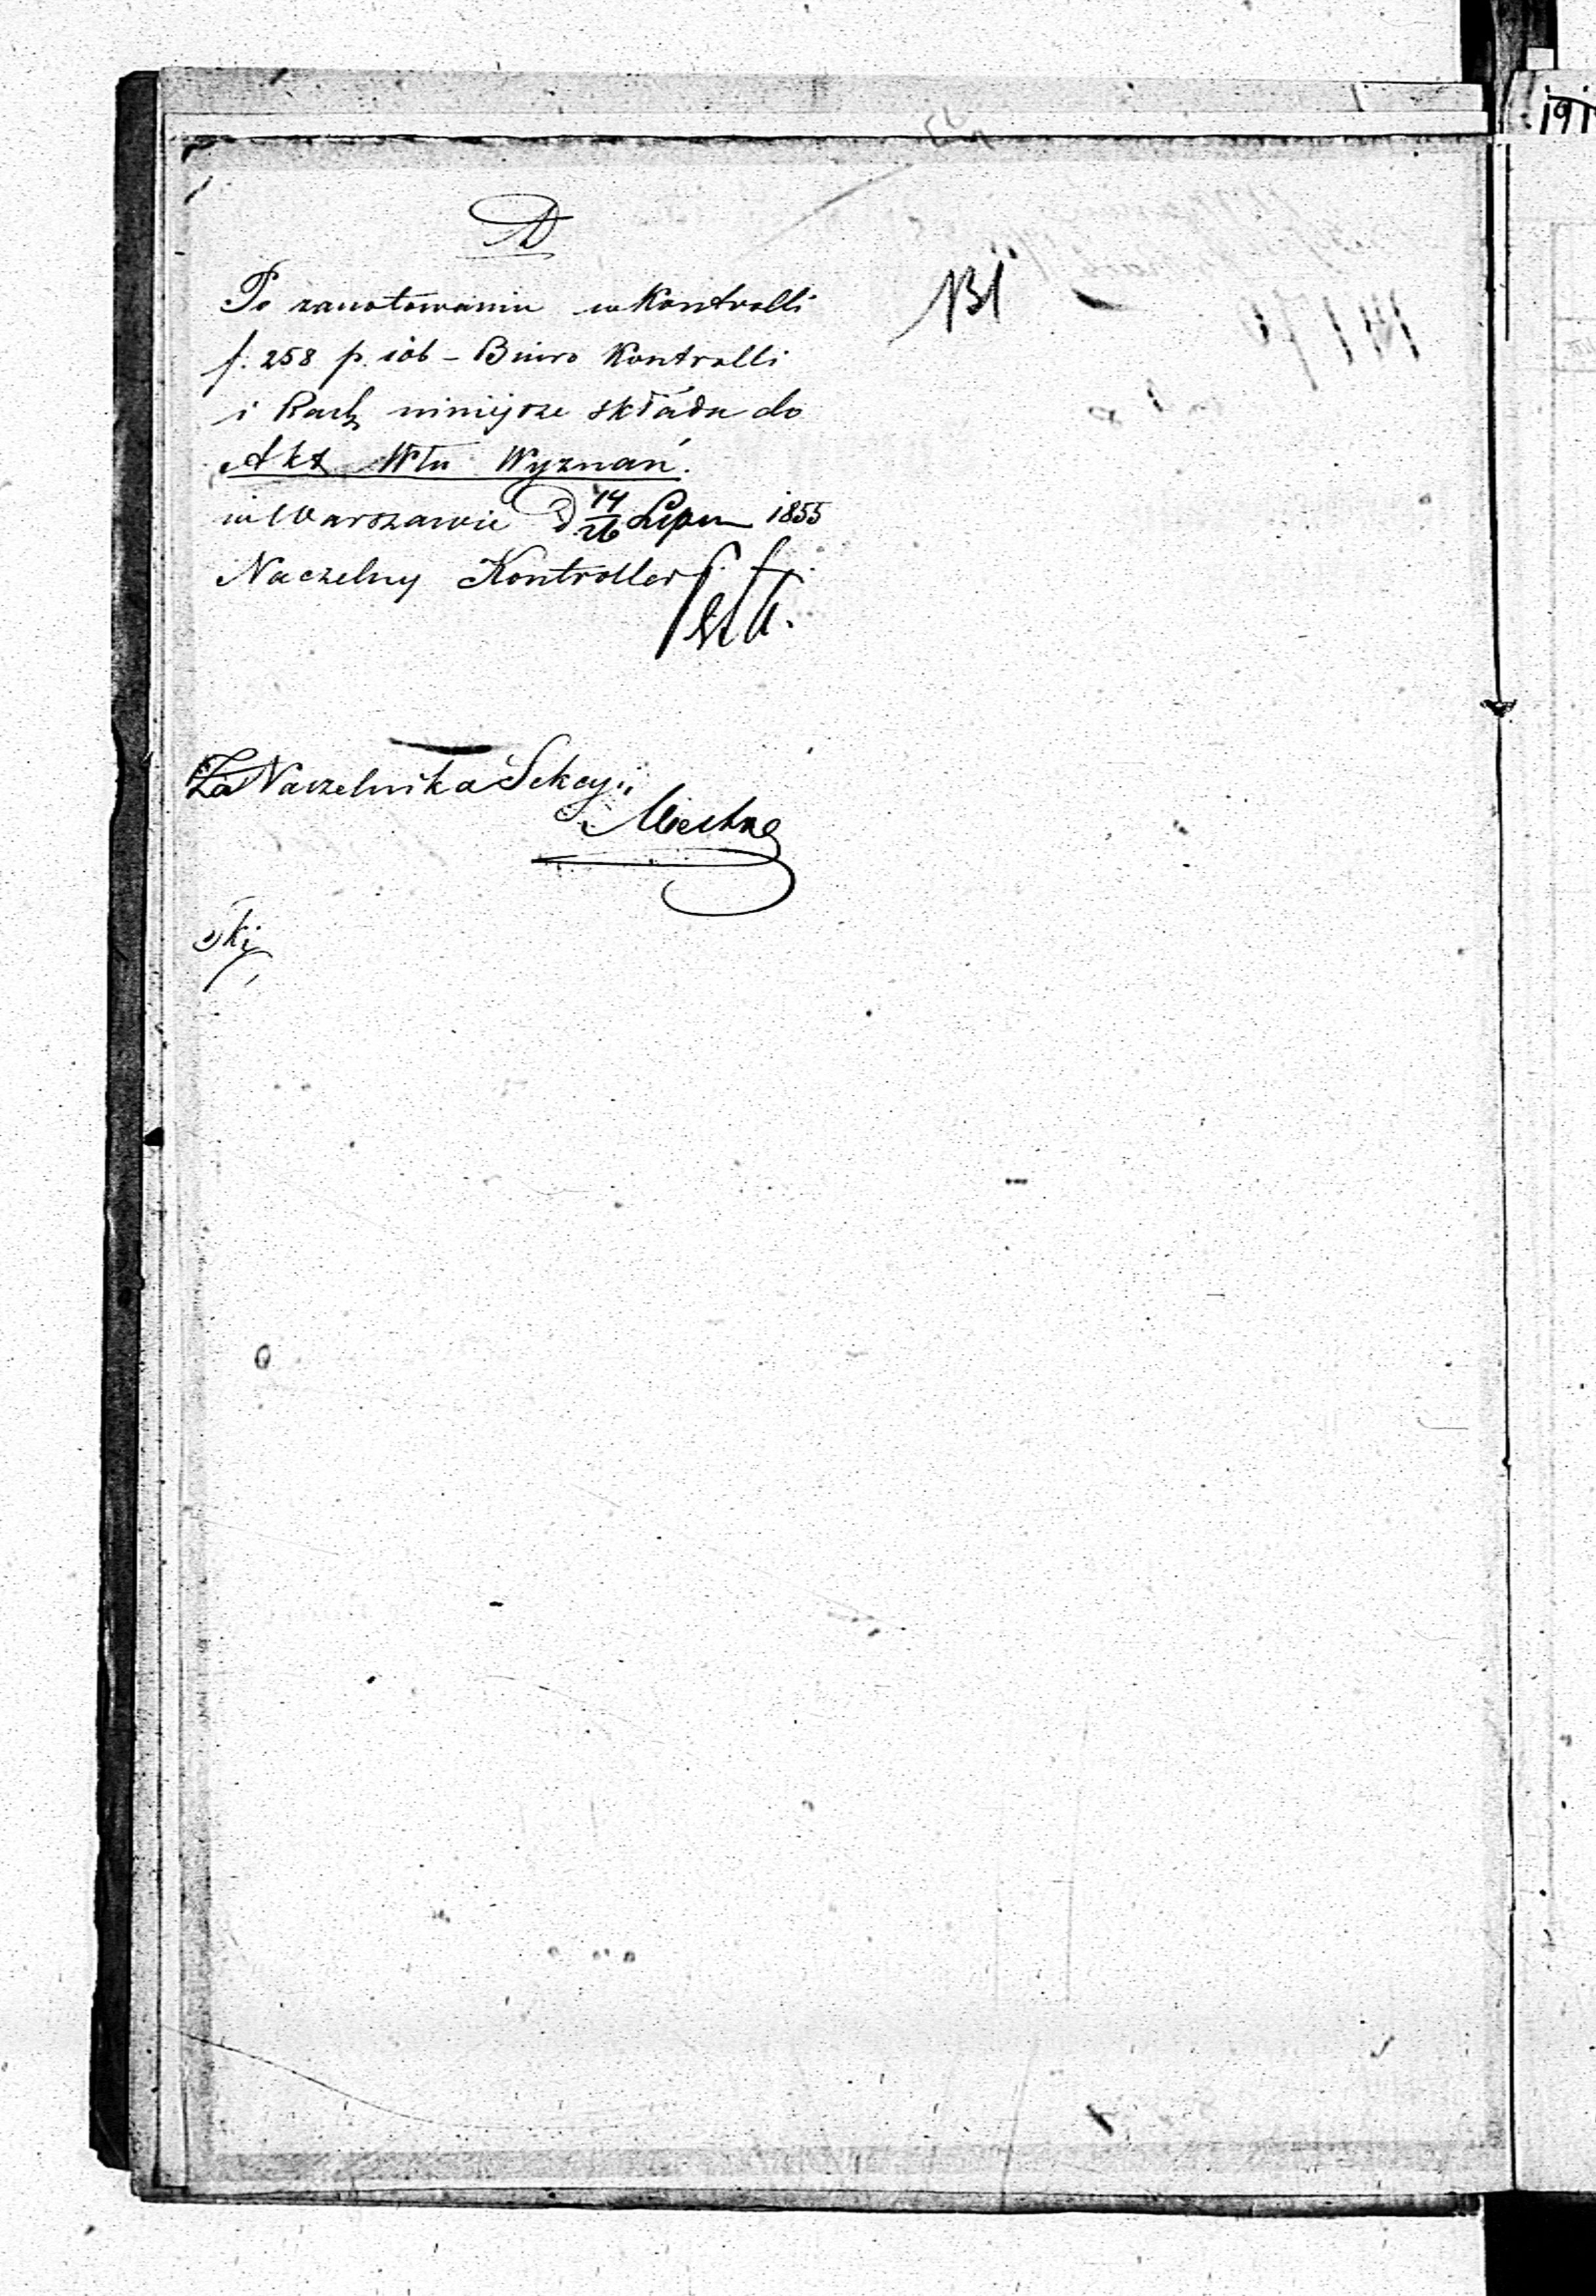 Po zanotowaniu w Kontrolli
f. 258 p. iob – Biuro Kontrolli
i Rach niniejsze składa do
Akt Włu Wyznań.
w Warszawie D. 14/26 Lipca 1855
Naczelny Kontroller
Za Naczelnika Sekcyi